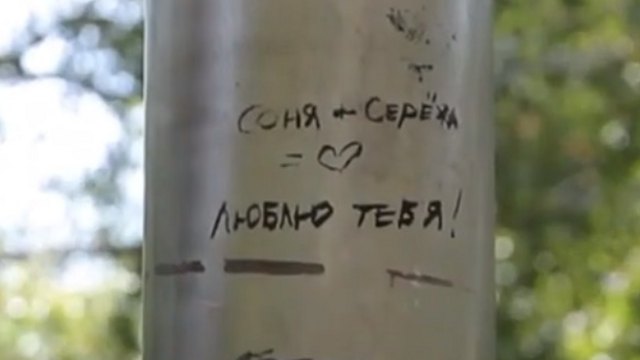 СОНЯ + СЕРЁЖА
= ♡
ЛЮБЛЮ ТЕБЯ!